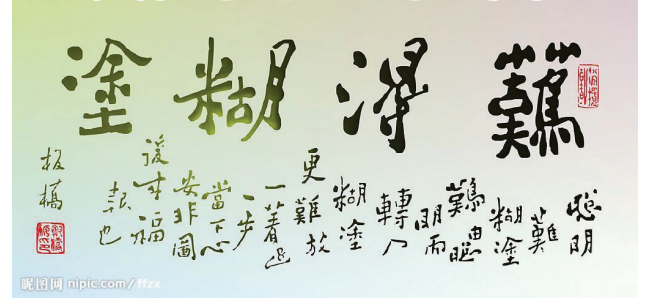 難得糊塗
聰明
難
糊塗
難由聰
明而
轉入
糊塗
更難放
一著退
一步
當下心
安非圖
後來福
報也
板橋
昵图网 nipic.com/ffzx